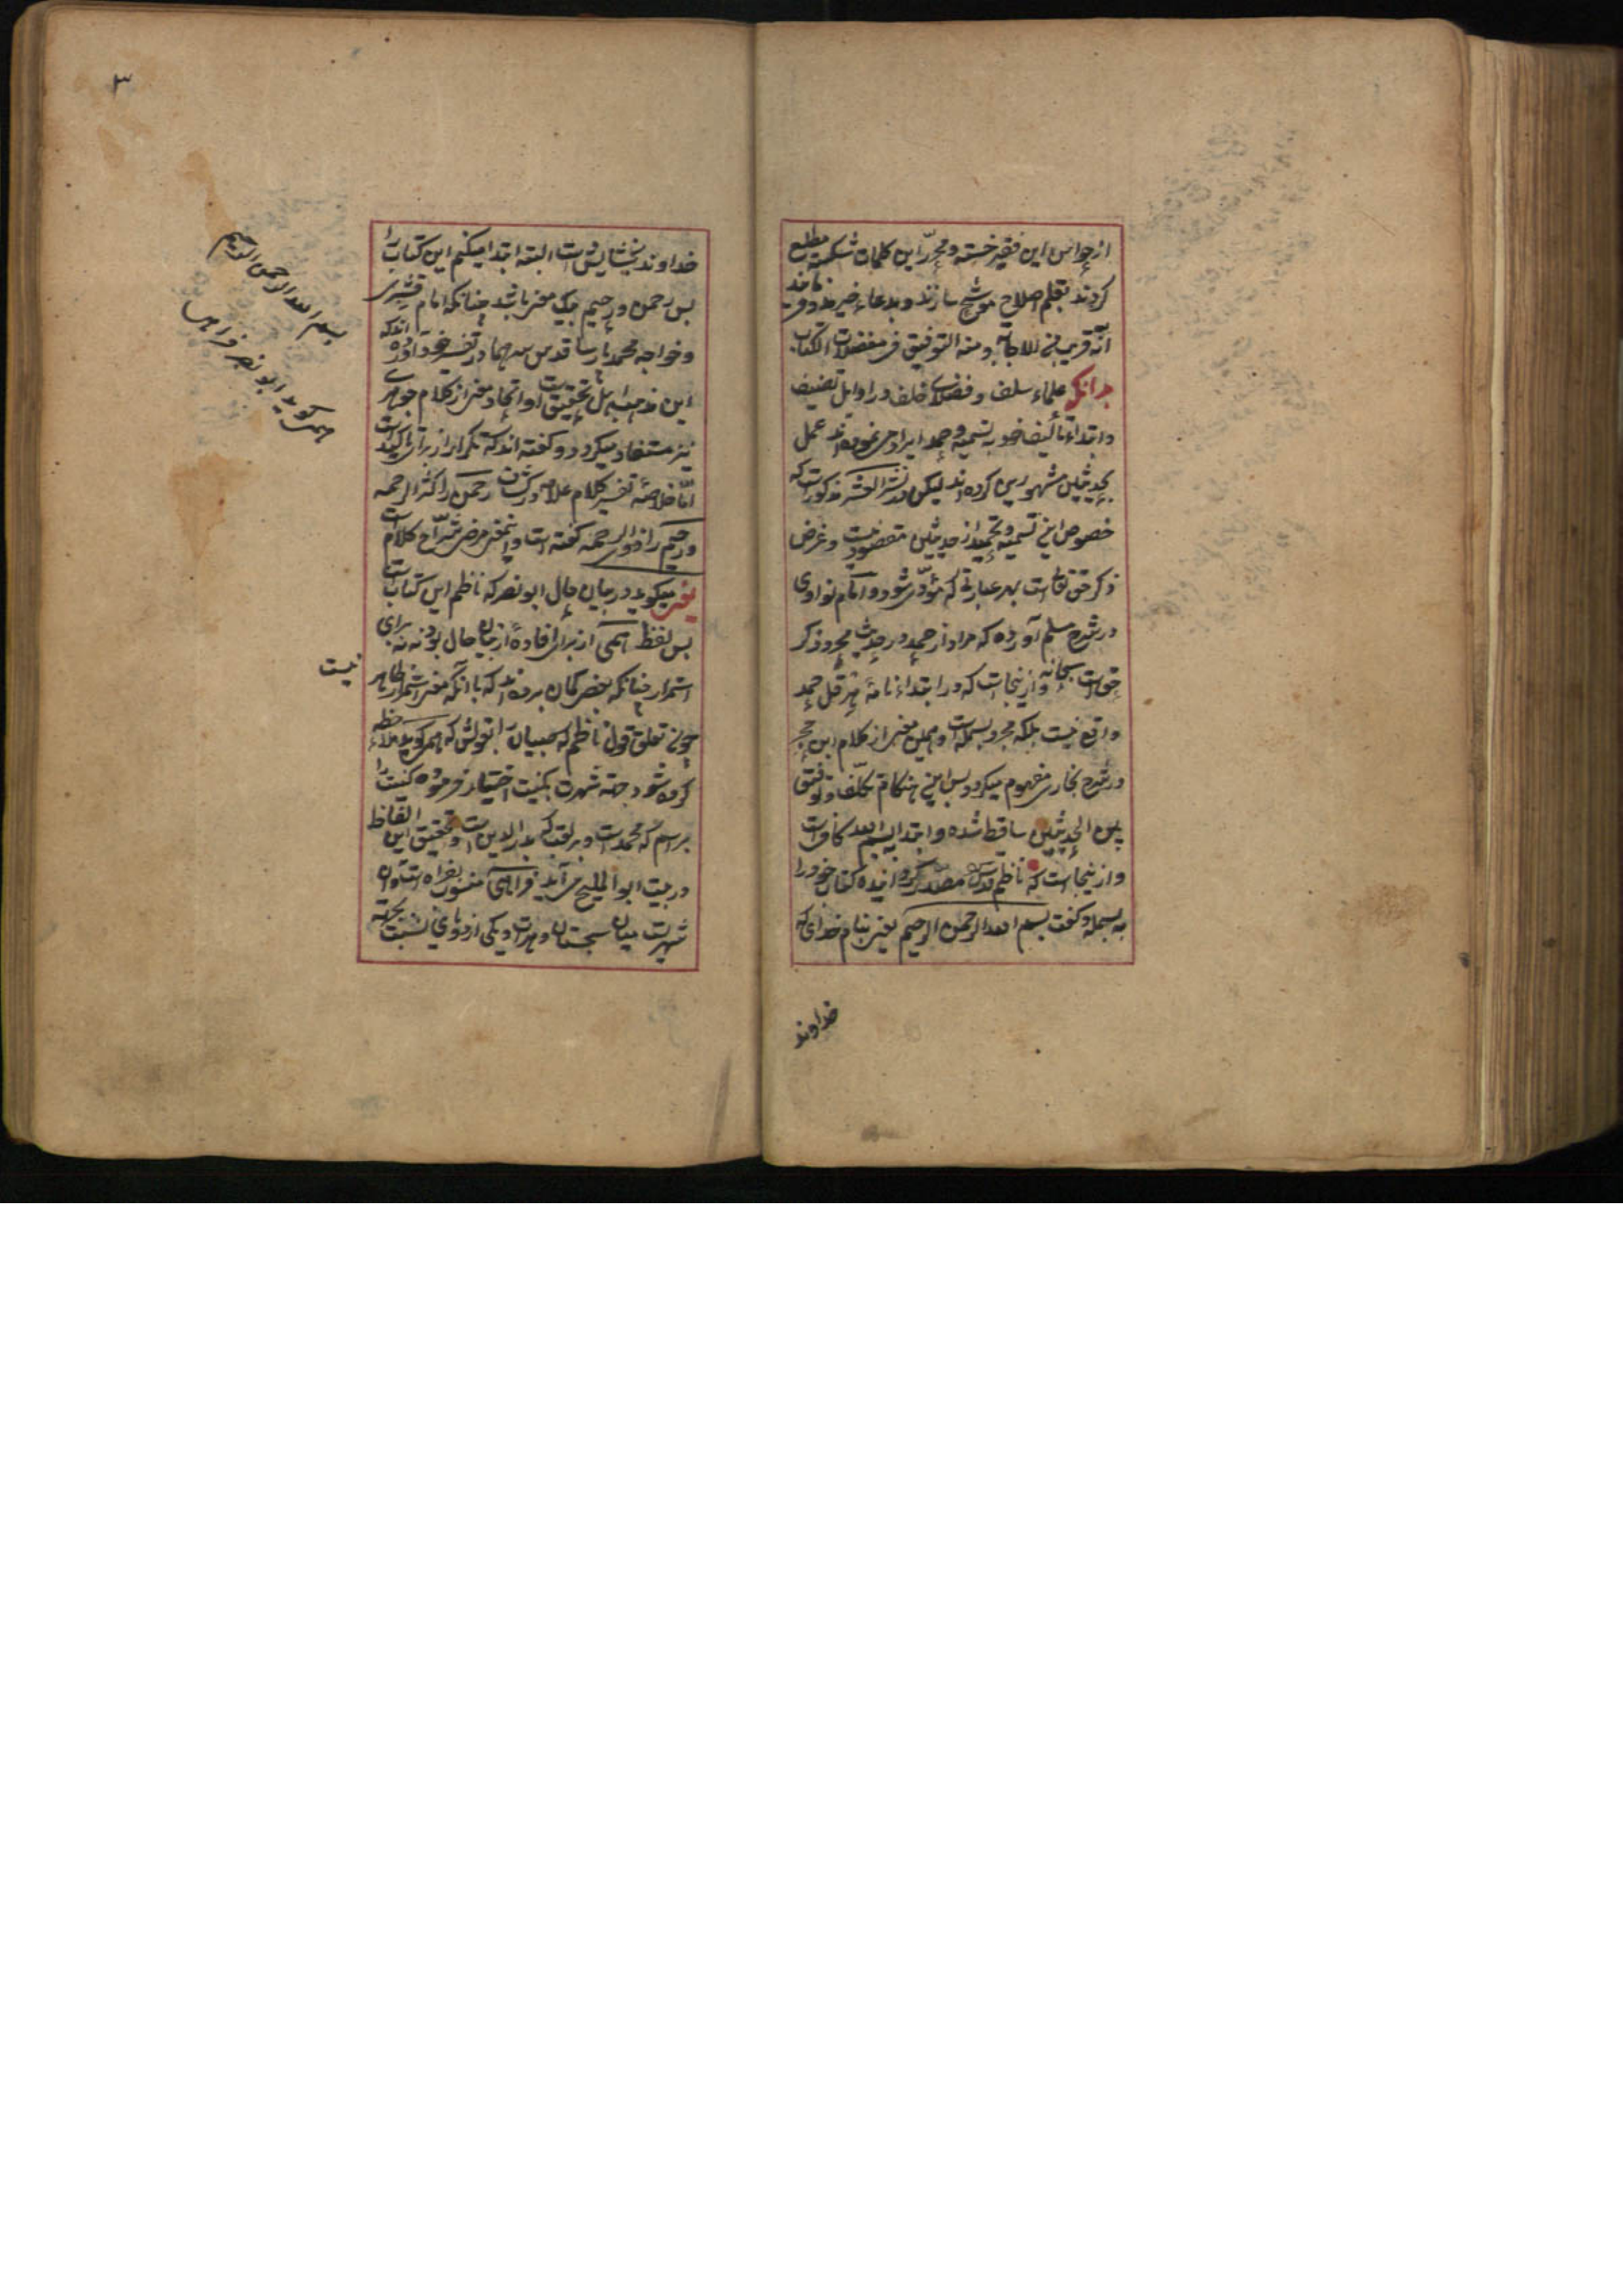 از حواس این فقیر خسته و محرر این کلمات شکسته مطلع
کردند بقلم اصلاح موشح سازند و بدعاء خیر مدد فرمایند
انه قریب الاجابه و منه التوفیق فی معضلات الکتاب
بدانکه علماء سلف و فضلای خلف در اوایل تصنیف
و ابتداء تألیف خود به تسمیه و حمد ایراد می نموده اند عمل
بحدیثین مشهورین کرده اند لیکن در نشر العشر مذکورست که
خصوص این تسمیه و تحمید از حدیثین مقصود نیست و غرض
ذکر حق تعالی است بهر عبارتی که مؤدی شود و امام نواوی
در شرح مسلم آورده که مراد از حمد در حدیث مجرد ذکر
حق است سبحانه و ازینجاست که در ابتداء نامهٔ هرقل حمد
واقع نیست بلکه مجرد بسمله است و همین معنی از کلام ابن حجر
در شرح بخاری مفهوم میکردد پس این هنکام تکلف و توفیق
بین الحدیثین ساقط شده و ابتدا ببسم الله کافیست
و ازینجاست که ناظم قدس سره مصدر کردانیده کتاب خود را
به بسمله و کفت بسم الله الرحمن الرحیم یعنی بنام خدای که
خداوند
٣
خداوند بخشایش است البته ابتدا میکنم این کتاب را
پس رحمن و رحیم بیک معنی باشد چنانکه امام قشیری
و خواجه محمد پارسا قدس سرهما در تفسیر خود آورده اند که
این مذهب اهل تحقیق است و اتحاد معنی از کلام جوهری
نیز مستفاد میکردد و کفته اند که تکرار از برای تاکید است
اما خلاصهٔ تفسیر کلام علامه در کشاف رحمن را کثیر الرحمه
و رحیم را ذو الرحمه کفته است و اینمعنی مرضی شراح کلام است
یعنی میکوید در بیان حال ابو نصر که ناظم این کتابست
پس لفظ همی از برای افادهٔ از بیان حال بود نه برای
استمرار چنانکه بعضی کمان برده اند که با آنکه معنی استمرار ظاهر
نیست
چون تعلق قول ناظم که حبیبان بقولش که همی کوید ملاحظه
کرده شود جهة شهرت بکنیت اختیار فرموده کنیت را
بر اسم که محمد است و بر لقب که بدر الدین است و تحقیق این الفاظ
در بیت ابو الملیح می آید فراهی منسوب بفراه است و آن
شهریست میان سجستان و هرات و یکی از دو یای نسبت بجهة
بسم الله الرحمن الرحیم
همی کوید ابو نصر فراهی